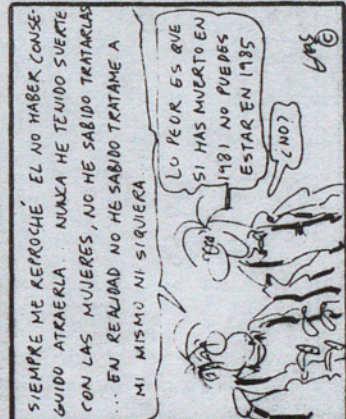 SIEMPRE ME REPROCHÉ EL NO HABER CONSE-
GUIDO ATRAERLA. NUNCA HE TENIDO SUERTE
CON LAS MUJERES, NO HE SABIDO TRATARLAS
... EN REALIDAD NO HE SABIDO TRATAME A
MI MISMO NI SIQUIERA
LO PEOR ES QUE
SI HAS MUERTO EN
1981 NO PUEDES
ESTAR EN 1985
¿NO?
©